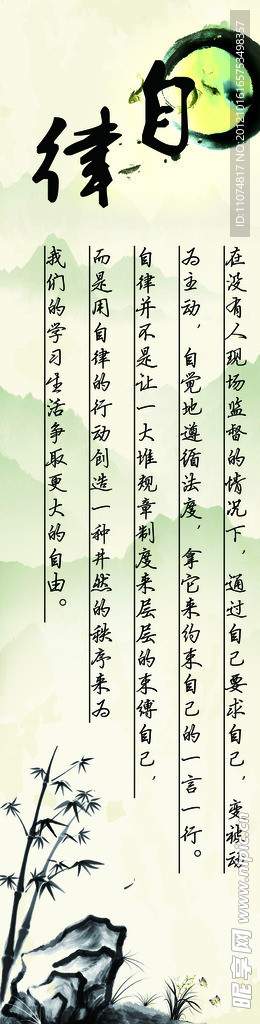 自律
在没有人现场监督的情况下，通过自己要求自己，变被动
为主动，自觉地遵循法度，拿它来约束自己的一言一行。
自律并不是让一大堆规章制度来层层的束缚自己，
而是用自律的行动创造一种井然的秩序来为
我们的学习生活争取更大的自由。
ID:11074817 NO:20121016165753498357
昵享网 www.nipic.cn